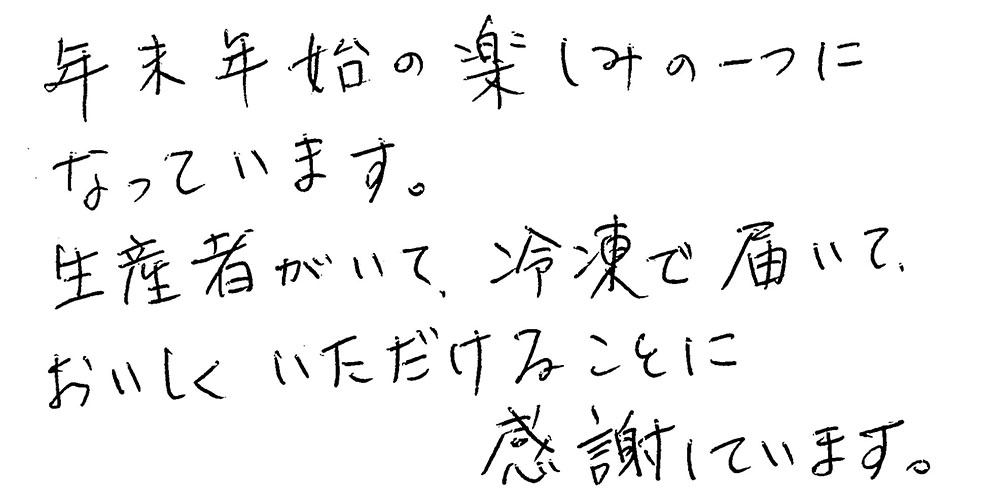 年末年始の楽しみの一つに
なっています。
生産者がいて、冷凍で届いて、
おいしくいただけることに
感謝しています。